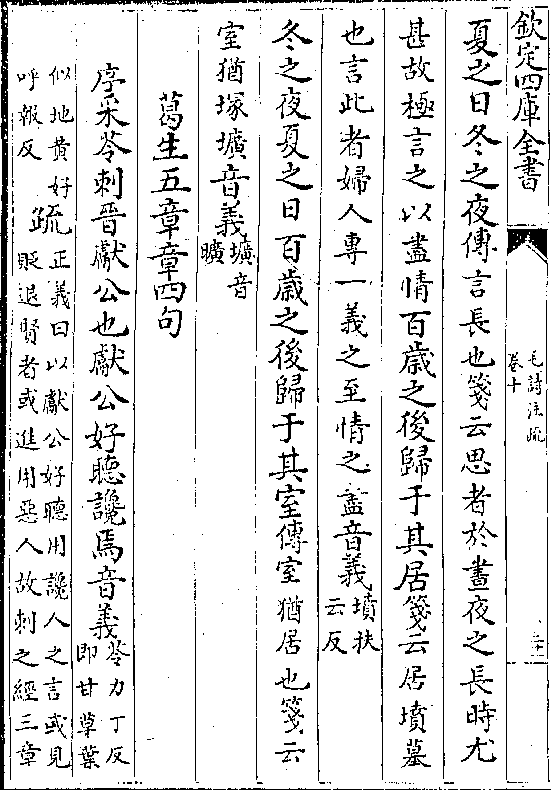 欽定四庫全書
毛詩注疏
卷十
夏之日冬之夜傳言長也箋云思者於晝夜之長時尤
甚故極言之以盡情百歲之後歸于其居箋云居墳墓
也言此者婦人專一義之至情之盡音義墳扶
云反
冬之夜夏之日百歲之後歸于其室傳室猶居也箋云
室猶塚壙音義壙音
曠
葛生五章章四句
序采苓刺晉獻公也獻公好聽讒焉音義苓力丁反
即甘草葉
似地黄好
呼報反
疏正義曰以獻公好聽用讒人之言或見
貶退賢者或進用惡人故刺之經三章